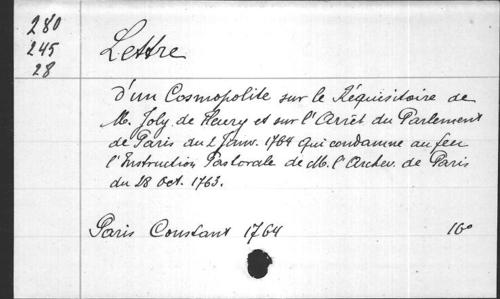 280
245
28
Lettre
d'un Cosmopolite sur le Réquisitoire de
M. Joly de Fleury et sur l'Arrêt du Parlement
de Paris du 2 Janv. 1764 qui condamne au feu
l'Instruction Pastorale de M. l'Archev. de Paris
du 28 Oct. 1763.
Paris Constant 1764 16°